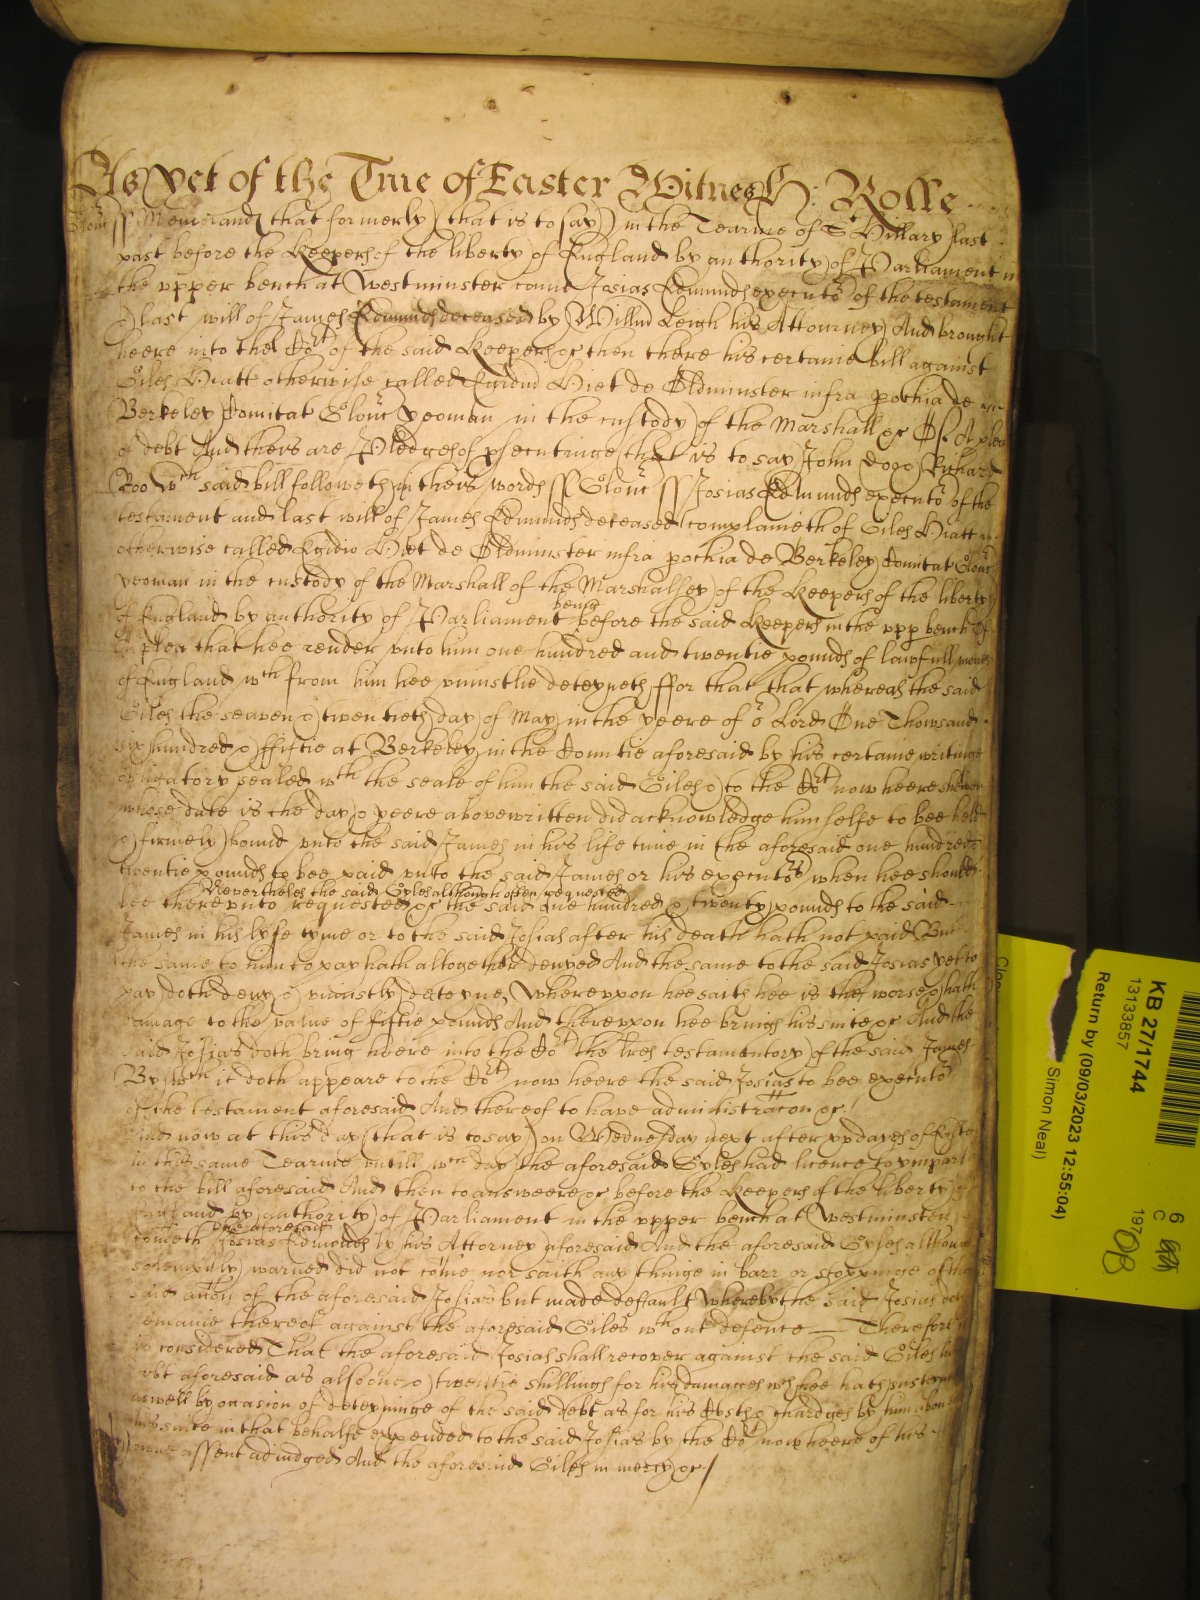 As yet of the Tme of Easter Witnes H: Rolle
Glouc ss Memorand that formerly (that is to say) in the Tearme of St Hillary last
past before the Keepers of the liberty of England by authority of Parliament in
the upper bench at Westminster came Josias Edmunds executor of the testament
& last will of James Edmunds deceased by Willm Leigh his Attourney And brought
heere into the Cort of the said Keepers &c then there his certaine bill against
Giles Hiatt otherwise called Egidiu Hiet de Oldminster infra pochia de
Berkeley Comitat Glouc yeoman in the custody of the Marshall &c Of A plea
of debt And there are Pledges of psecutinge that is to say John Doo Richard
Roo Wch said bill followeth in theis words ss Glouc ss Josias Edmunds executor of the
testament and last will of James Edmunds deceased complaineth of Giles Hiatt
otherwise called Egidio Hiet de Oldminster infra pochia de Berkeley Comitat Glouc
yeoman in the custody of the Marshall of the Marshalsey of the Keepers of the liberty
of England by authority of Parliament before the said Keepers in the upp bench Of
being
A plea that hee render unto him one hundred and twentie pounds of lawfull money
of England wch from him hee uniustlie deteyneth ffor that that whereas the said
Giles the seaven & twentieth day of May in the yeere of or Lord One Thowsand
six hundred & ffiftie at Berkeley in the Countie aforesaid by his certaine writinge
obligatory sealed wth the seale of him the said Giles & to the Cort now heere shewen
whose date is the day & yeere abovewritten did acknowledge himselfe to bee held
& firmely bound unto the said James in his life time in the aforesaid one hundred
twentie pounds to bee paid unto the said James or his executors when hee should
Nevertheles the said Gyles although often requested
bee thereunto requested &c the said one hundred & twenty pounds to the said
James in his lyfe tyme or to the said Josias after his death hath not paid But
the same to him to pay hath altogether denyed And the same to the said Josias yet to
pay doth deny & uniustly deteyne Whereupon hee saith hee is the worse & hath
damage to the value of fiftie pounds And thereupon hee brings his suite &c And the
said Josias doth bring heere into the Cort the lres testamentory of the said James
By wch it doth appeare to the Cort now heere the said Josias to bee executor
of the testament aforesaid And thereof to have administracon &c
And now at this day (that is to say) on Wednesday next after xv dayes of Easter
in this same Tearme untill wch day the aforesaid Gyles had licence to imparl
to the bill aforesaid And then to answeere &c before the Keepers of the liberty of
England by authority of Parliament in the upper bench at Westminster
the aforesaid
cometh Josias Edmonds by his Attorney aforesaid And the aforesaid Gyles although
solempnly warned did not come nor saith any thinge in barr or stoppinge of the
said accon of the aforesaid Josias but made deffault Whereby the said Josias doth
remaine thereof against the aforesaid Giles wthout defence — Therefore it
is considered That the aforesaid Josias shall recover against the said Giles his
debt aforesaid as alsoe & twentie shillings for his damages wch hee hath susteyned
aswell by occasion of deteyninge of the said debt as for his Costs & chardges by him about
his suite in that behalfe expended to the said Josias by the Cort now heere of his
owne assent adiudged And the aforesaid Giles in mercy &c
KB 27/1744
13133857
Return by (09/03/2023 12:55:04)
Simon Neal)
6
C
197